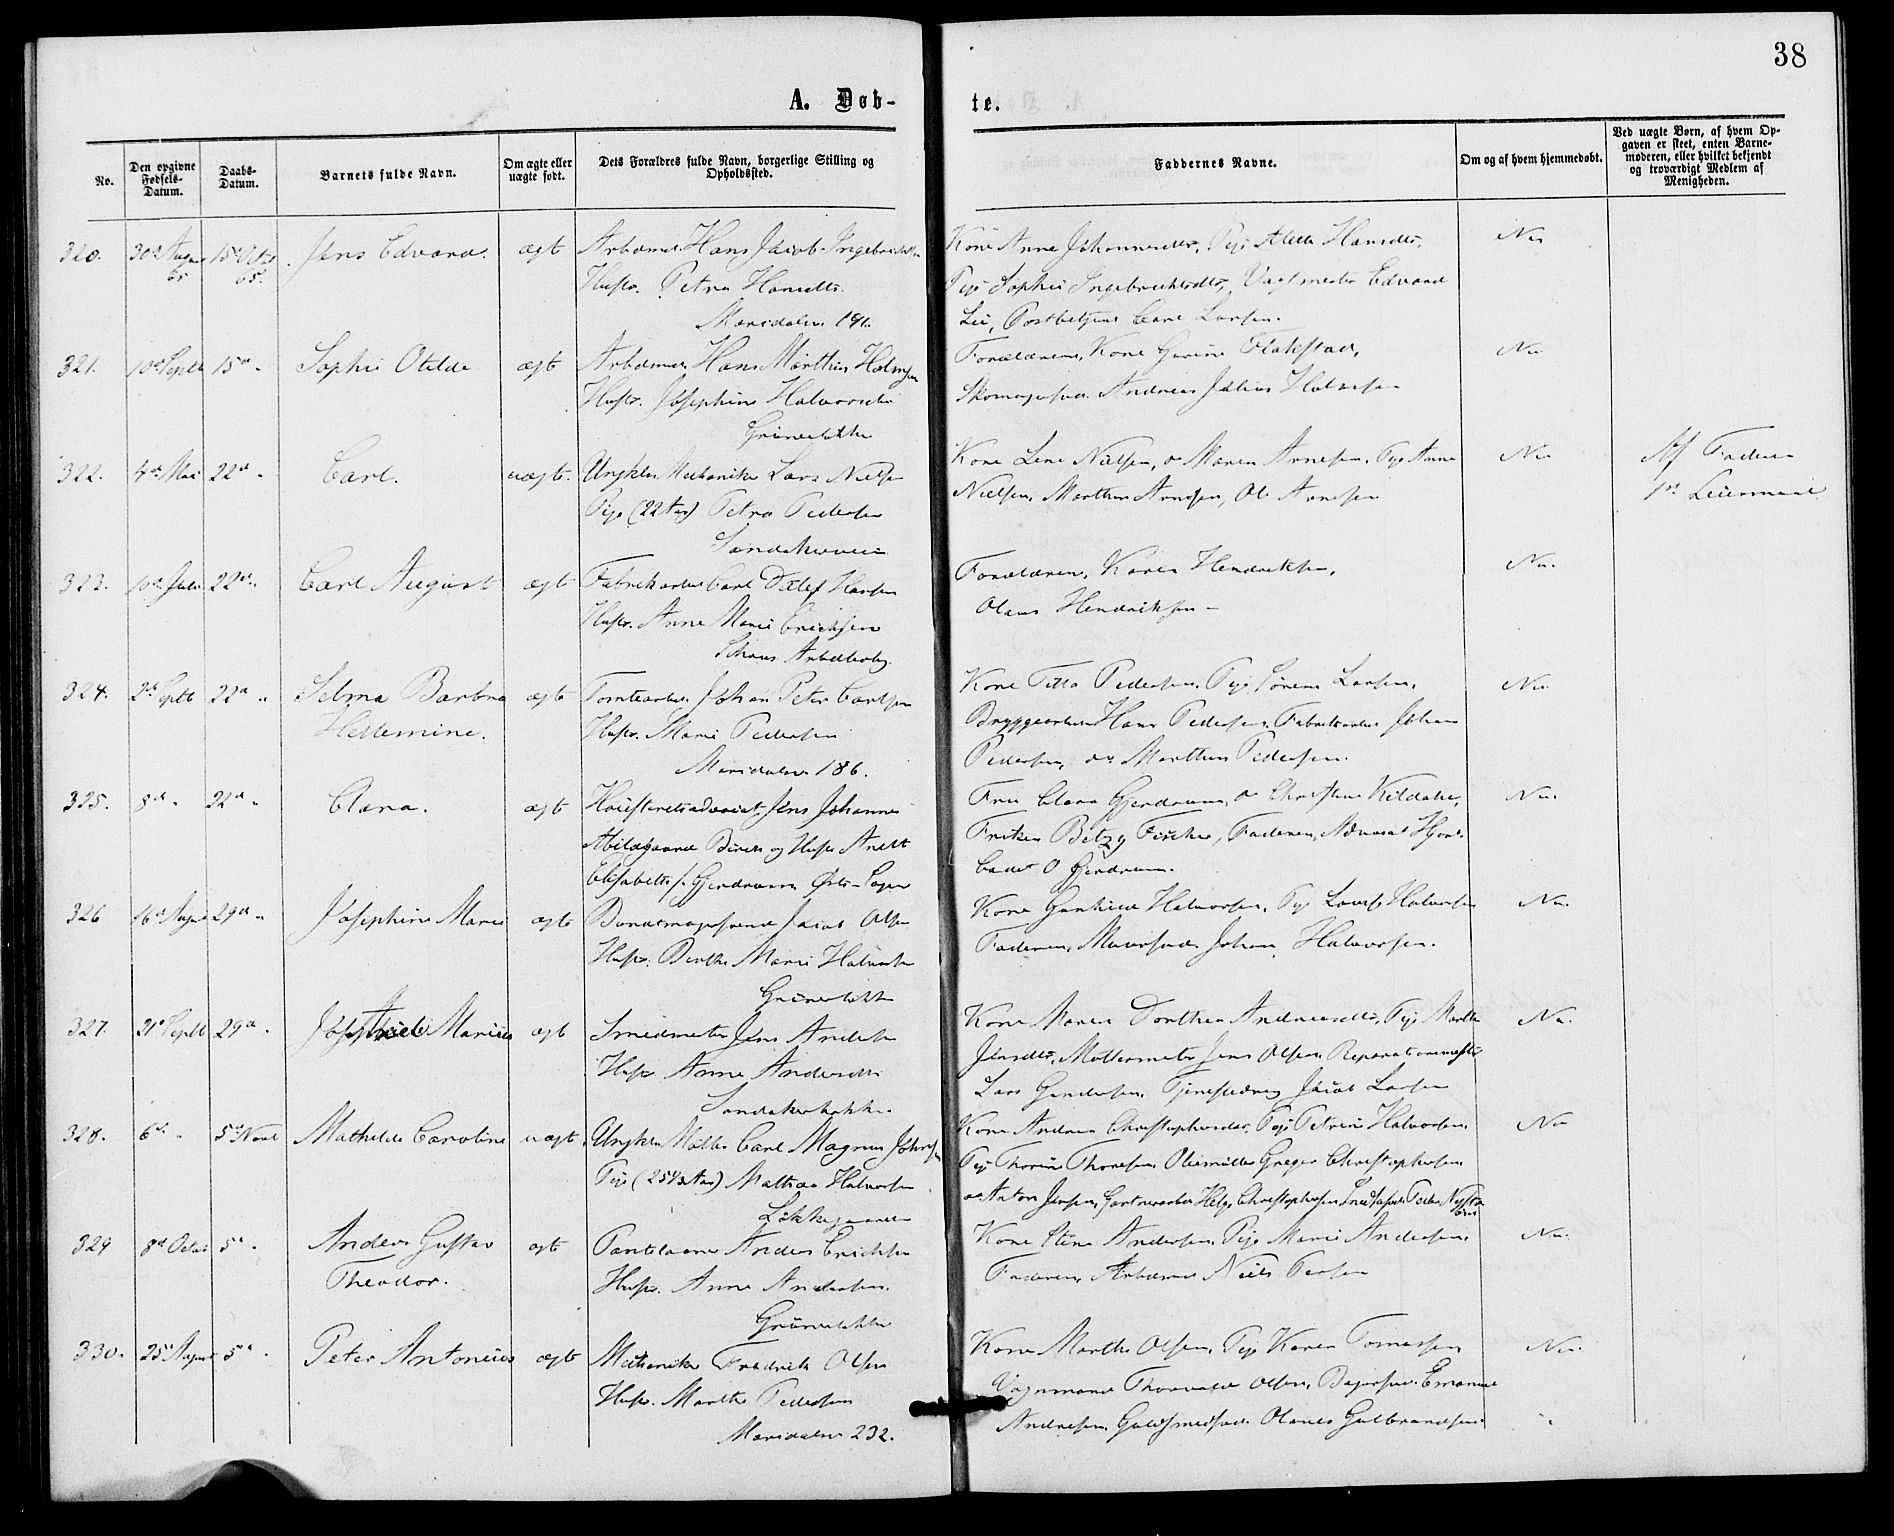 38
A. Døb-
te.
No.
Den opgivne Fødsels-Datum.
Daabs-Datum.
Barnets fulde Navn.
Om ægte eller uægte født.
Dets Forældres fulde Navn, borgerlige Stilling og Opholdssted.
Faddernes Navne.
Om og af hvem hjemmedøbt.
Ved uægte Børn, af hvem Opgaven er skeet, enten Barnemoderen, eller hvilket bekjendt og troværdigt Medlem af Menigheden.
320. 30te August 65 15de Octbr 65. Jens Edvard. ægt Arbdmd. Hans Jacob Ingebrichtsen
Hustr. Petra Hansdtr.
Maridalsv. 191.
Kone Anne Johannesdtr, Pige Alette Hansdtr,
Pige Sophie Ingebrichtsdtr, Vagtmester Edvard
Lie, Postbetjent Carl Larsen.
Nei
321. 10de Septb 15de " Sophie Otilde ægt Arbdmd. Hans Marthin Halvorsen
Hustr. Josephine Halvorsdtr
Grünerløkke
Forældrene, Kone Gurine Flakstad,
Skomagersvd. Andreas Julius Halvorsen
Nei
322. 4de Mai 22de " Carl. uægt. Ungkln. Mechaniker Lars Nielsen
Pige (22 Aar) Petra Pedersen
Sandakerveien
Kone Lene Nielsen, do Maren Arnesen, Pige Anne
Nielsen, Marthin Arnesen, Ole Arnesen
Nei
Af Faderen
1ste Leiermaal
323. 10de Juli 22de " Carl August ægt Fabrikarbd. Carl Detlef Hansen
Hustr. Anne Marie Erichsen
Schous Arbeiderbolig.
Forældrene, Karen Hendriksen,
Olaus Hendriksen
Nei.
324. 2de Septb 22de " Selma Barbra ægt Tomtearbd. Johan Peter Carlsen
Hellemine.
Hustr. Marie Pedersen
Maridalsv. 186.
Kone Pedersen, Pige Larsen,
Bryggearbd. Hans Pedersen, Fabrikarbd. Johan
Pedersen, do Marthin Pedersen.
Nei
325. 8de " 22de " Clara. ægt Høiesteretsadvocat Jens Johannes
Abildgaard Birch og Hustr. Anette
Elisabeth f. Gjerdrum Østre
Fru Clara Gjerdrum, do Christine Kildahl,
Frøken Betzy Fischer, Faderen, Advocat Hjort,
Cadet O Gjerdrum.
Nei.
326 16de August 29de " Josephine Marie ægt Bundtmagersvend Jacob Olsen
Hustr. Berthe Marie Halvorsen
Grünerløkke
Kone Gunhild Halvorsen, Pige Lovise Halvorsen
Faderen, Muursvd. Johan Halvorsen.
Nei.
327. 21de Septb 29de " Marius ægt Smedmester Jens Andersen
Hustr. Anne Andersdtr
Sandakerløkke.
Kone Maren Dorthea Andreasdtr, Pige Marthe
Jensdtr, Møllermester Jens Olsen, Reparationsmester
Lars Gundersen, Jacob Larsen
Nei.
328. 6te " 5te Novb Mathilde Caroline uægt. Ungkln. Møller Carl Magnus Johnsen
Pige (25 1/2 Aar) Mathea Halvorsen
Løkkegaarden
Kone Andrea Christophersdtr, Pige Petrine Halvorsen,
Pige Thorine Thoresen, Oliemøller Greger Christophersen
do Anton Jensen, Gartnerarbd. Helge Christophersen, Peder
Nei
329 8de Octbr 5te " Anders Gustav ægt Anders Erichsen
Theodor.
Hustr. Anne Andersen.
Grünerløkke
Kone Stine Andersen, Pige Marie Andersen,
Faderen, Arbdmd. Niels
Nei.
330. 25de August 5te " Peter Antonius ægt Mechaniker Fredrik Olsen
Hustr. Marthe Pedersen
Maridalsv. 232.
Kone Marthe Olsen, Pige Karen Tomassen,
Vognmand Thorvald Olsen, Bagersvd. Emanuel
Andresen, Guldsmedsvd. Olaves Gulbrandsen.
Nei.